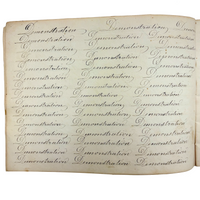 Demonstration Demonstration
Demonstration Demonstration Demonstration
Demonstration Demonstration Demonstration
Demonstration Demonstration Demonstration
Demonstration Demonstration Demonstration
Demonstration Demonstration Demonstration
Demonstration Demonstration Demonstration
Demonstration Demonstration Demonstration
Demonstration Demonstration Demonstration
Demonstration Demonstration Demonstration
Demonstration Demonstration Demonstration
Demonstration Demonstration Demonstration
Demonstration Demonstration Demonstration
Demonstration Demonstration Demonstration
Demonstration Demonstration Demonstration